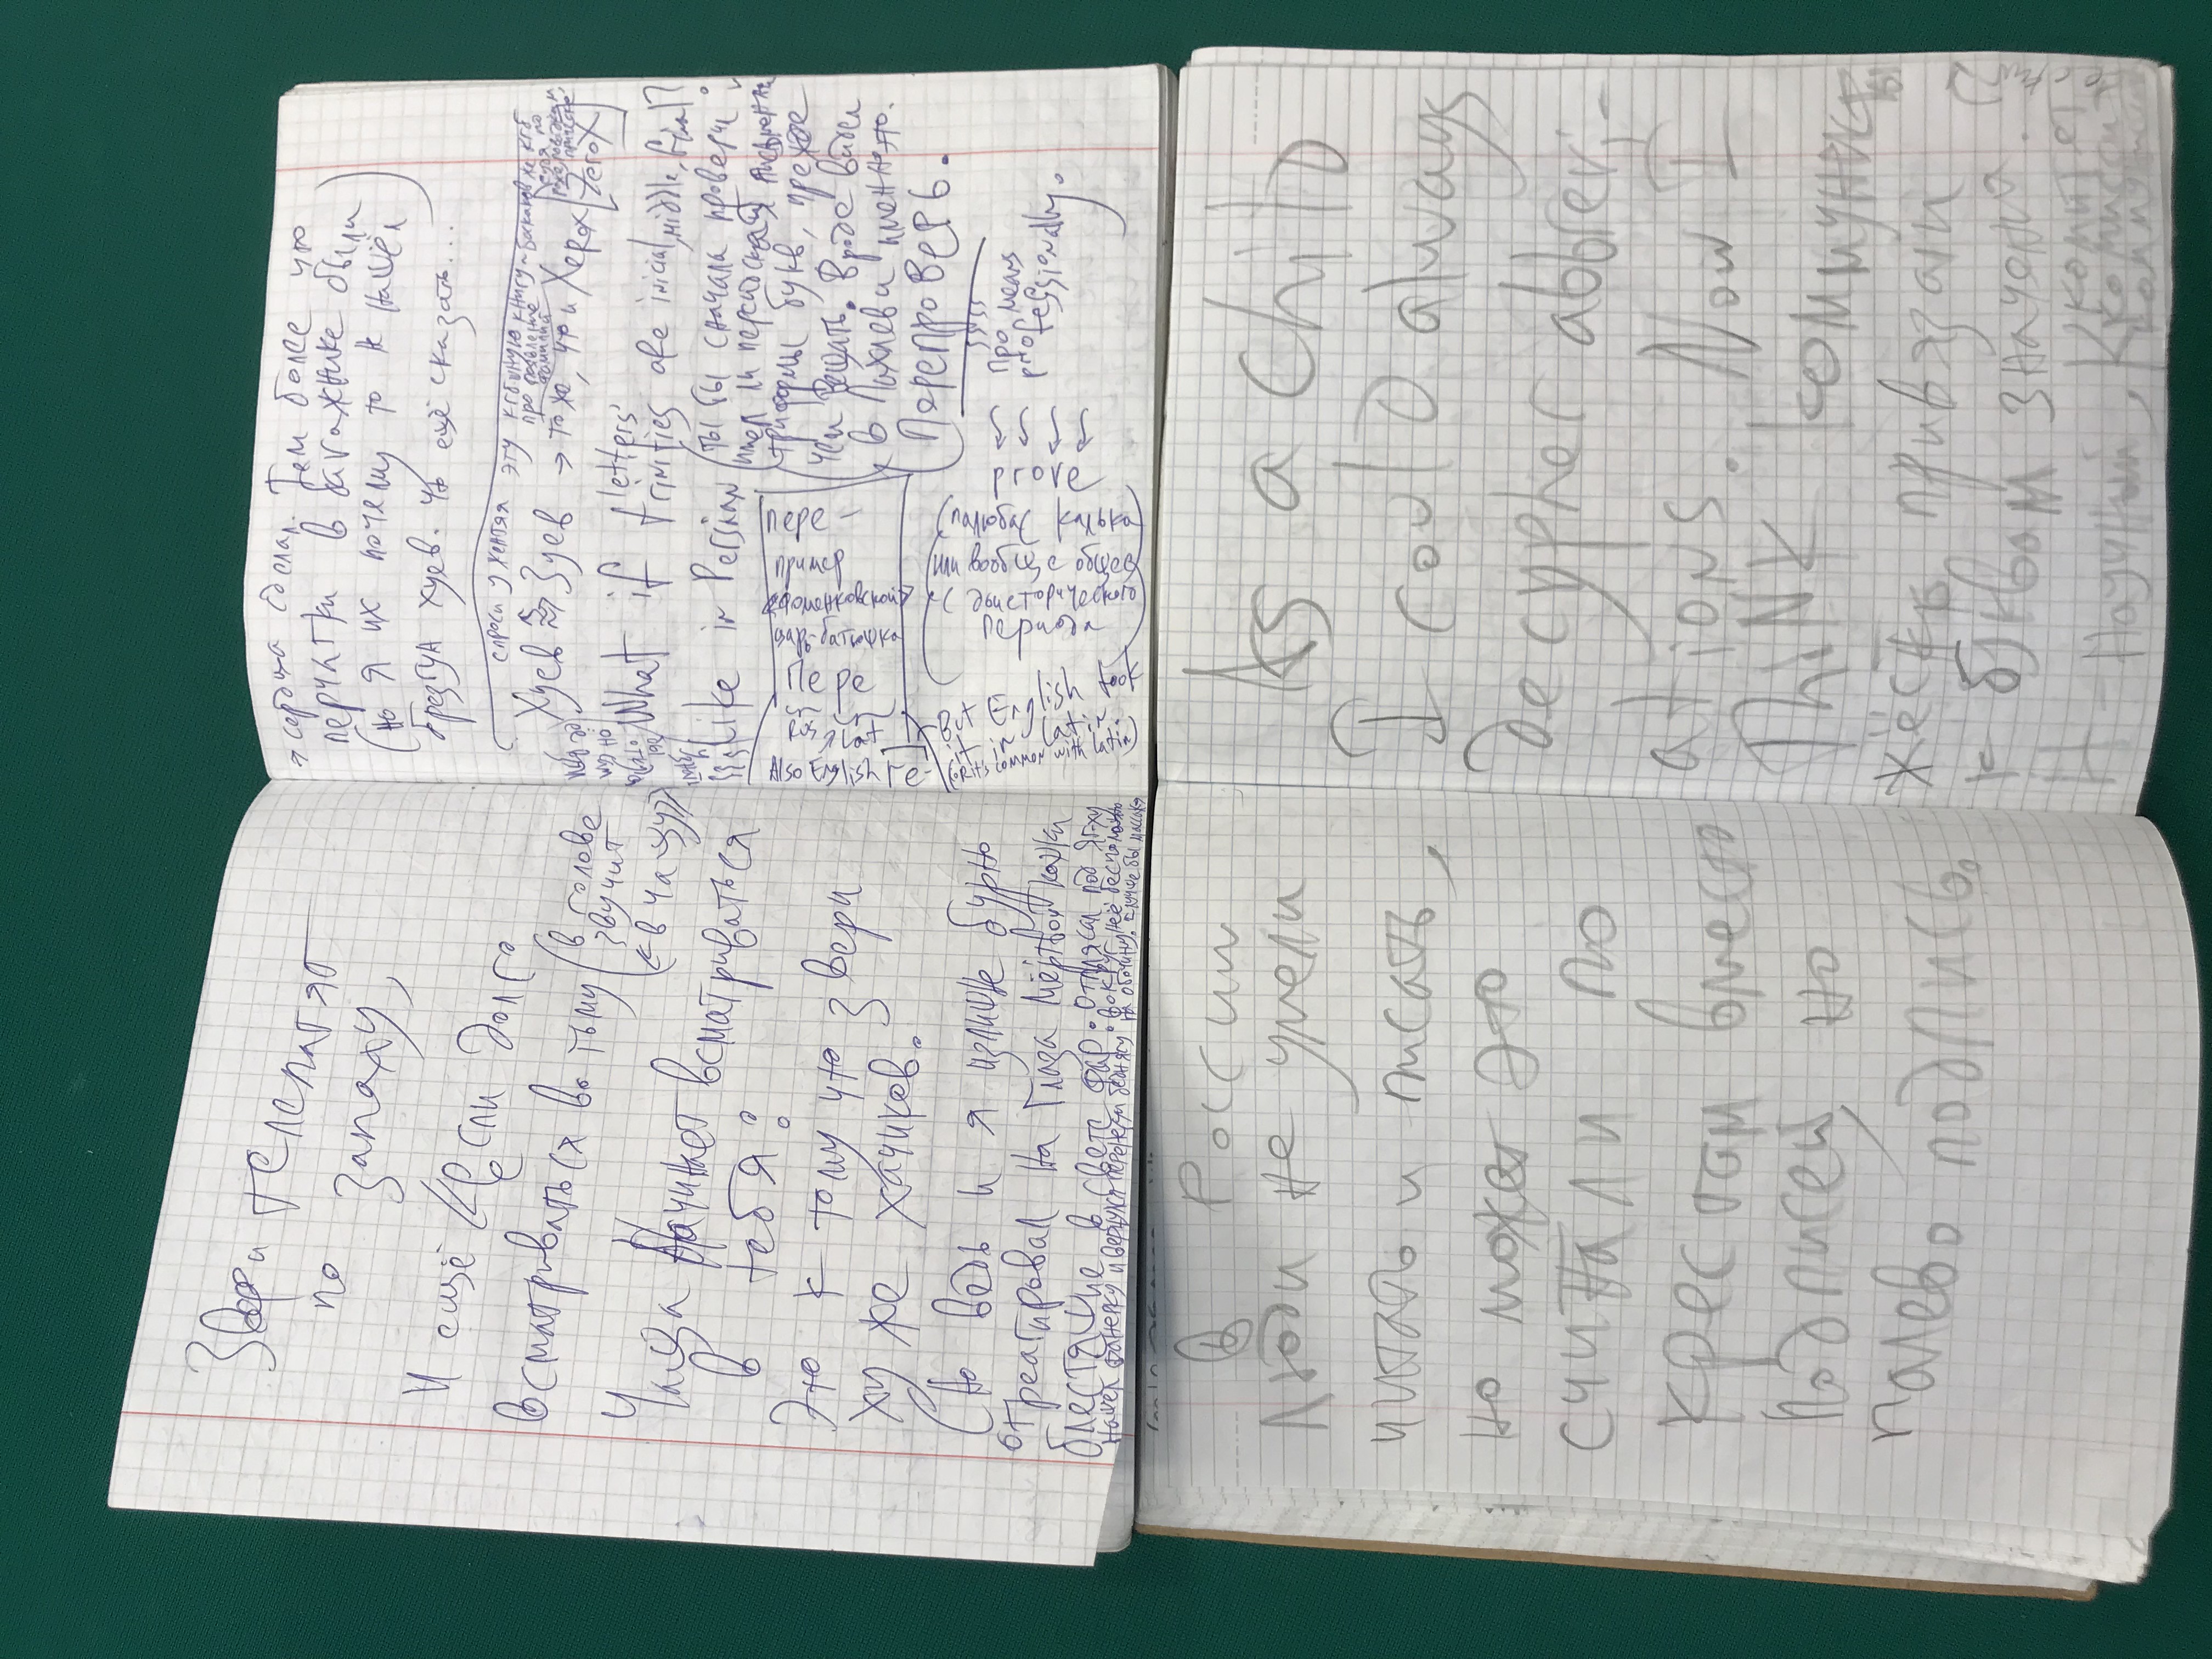 Звери телепатят
по запаху,
И ещё Если долго
всматриваться во тьму (в голове
звучит
«в чащу»)
Чаща Начинает всматриваться
в тебя:
Это к тому что звери
хуже хачиков.
(Но ведь и я излишне бурно
отреагировал на Глаза мёртвой кошки
блестящие в свете фар. Отплясал под Ягг-ху
Нашёл фанерку и вернулся перенести беднягу на обочину. Вокруг неё бесполезно
Лучше бы массаж
→ сердца сделал. Тем более что
перчатки в багажнике были
(но я их почему то не нашёл)
брезгун хуев. Что ещё сказать...
спроси у эту кгбшную книгу
про появление
фамилий
Хуев ≈> Зуев → то же, что и Xerox [ZeroX]
What if letters'
trinities are inicial, middle, final?
like in Persian
(ты бы сначала проверил
имел ли персидский
триформы букв, прежде
чем вещать. Вроде видел
в Пахлеви именно это.
Перепроверь.
про means
professionally.
prove
Пере-
пример
царь-батюшка
Пере
Also English re-
But English took
it in Latin
(or it's common with latin)
(палюбас калька
или вообще общее
с доисторического
периода
В России
люди не умели
читать и писать,
но может это
считали по
крестам вместо
подписей, но
палево подпись.
As a child
I could always
decypher abbrevi-
ations. Now I
Think коммунисты
жёстко привязали
к буквам значения.
Н - Научный, К комитет
комиссия